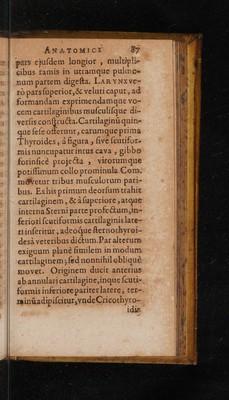 ANATOMICI 87
pars ejusdem longior, multipli-
cibus ramis in utramque pulmo-
num partem digesta. LARYNX ve-
rò pars superior, & veluti caput, ad
formandam exprimendamque vo-
cem cartilaginibus musculisque di-
versis constructa. Cartilaginũ quin-
que sese offerunt, earumque prima
Thyroides, à figura, sive scutifor-
mis nuncupatur intus cava, gibbo
forinsicè projecta, virorumque
potissimum collo prominula. Com-
movetur tribus musculorum pari-
bus. Ex his primum deorsum trahit
cartilaginem, & à superiore, atque
interna Sterni parte profectum, in-
feriori scutiformis cartilaginis late-
ri inseritur, adeoque sternothyroi-
des à veteribus dictum. Par alterum
exiguum planè similem in modum
cartilaginem; sed nonnihil obliquè
movet. Originem ducit anterius
ab annulari cartilagine, inque scuti-
formis inferiore pariter latere, ter-
minũ adipiscitur, vnde Cricothyro-
idis